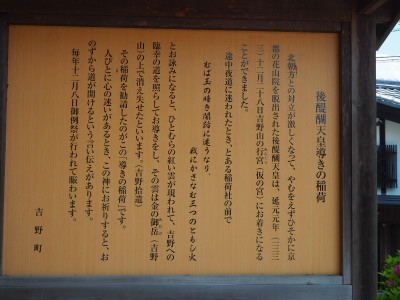 後醍醐天皇導きの稲荷
北朝方との対立が激しくなって、やむをえずひそかに京
都の花山院を脱出された後醍醐天皇は、延元元年(一三三
六)十二月二十八日吉野山の行宮(仮の宮)にお着きになる
ことができました。
途中夜道に迷われたとき、とある稲荷社の前で
むば玉の暗き闇路に迷うなり
我にかさなむ三つのともし火
とお詠みになると、ひとむらの紅い雲が現われて、吉野への
臨幸の道を照らしてお導きをし、その雲は金の御岳(吉野
山)の上で消え失せたといいます。(吉野拾遺)
その稲荷を勧請したのがこの「導きの稲荷」です。
人びとに心の迷いがあるとき、この神にお祈りすると、お
のずから道が開けるという言い伝えがあります。
毎年十二月八日御例祭が行われて賑わいます。
吉野町